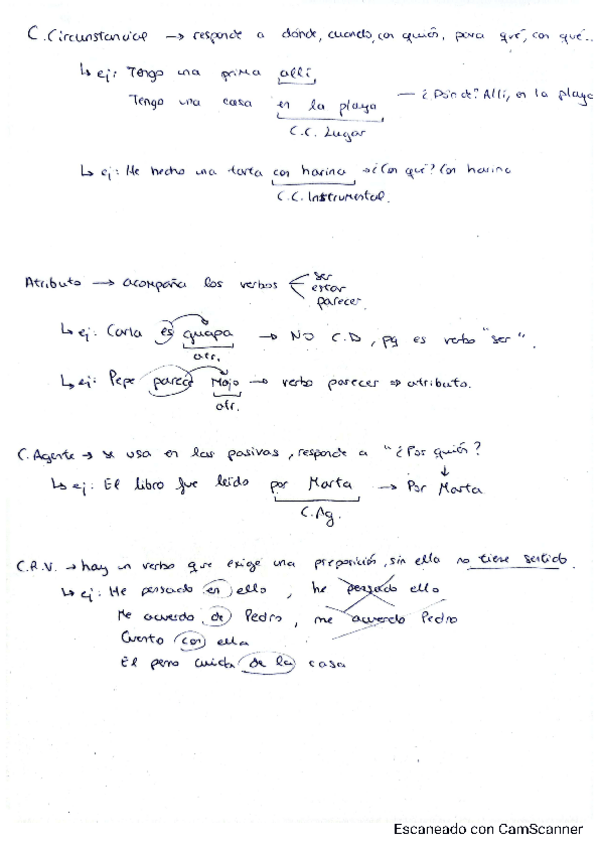 C. Circunstancial → responde a dónde, cuando, con quién, para qué, con qué...
↳ ej: Tengo una prima allí,
Tengo una casa en la playa — ¿Dónde? Allí, en la playa
C.C. Lugar
↳ ej: He hecho una tarta con harina → ¿Con qué? Con harina
C.C. Instrumental.
Atributo → acompaña los verbos ser
estar
parecer.
↳ ej: Carla es guapa → NO C.D, pq es verbo "ser".
atr.
↳ ej: Pepe parece majo → verbo parecer ⇒ atributo.
atr.
C. Agente → se usa en las pasivas, responde a "¿Por quién?
↳ ej: El libro fue leído por Marta → Por Marta
C. Ag.
C.R.V. → hay un verbo que exige una preposición, sin ella no tiene sentido.
↳ ej: He pensado en ello, he pensado ello
Me acuerdo de Pedro, me acuerdo Pedro
Cuento con ella
El perro cuida de la casa
Escaneado con CamScanner